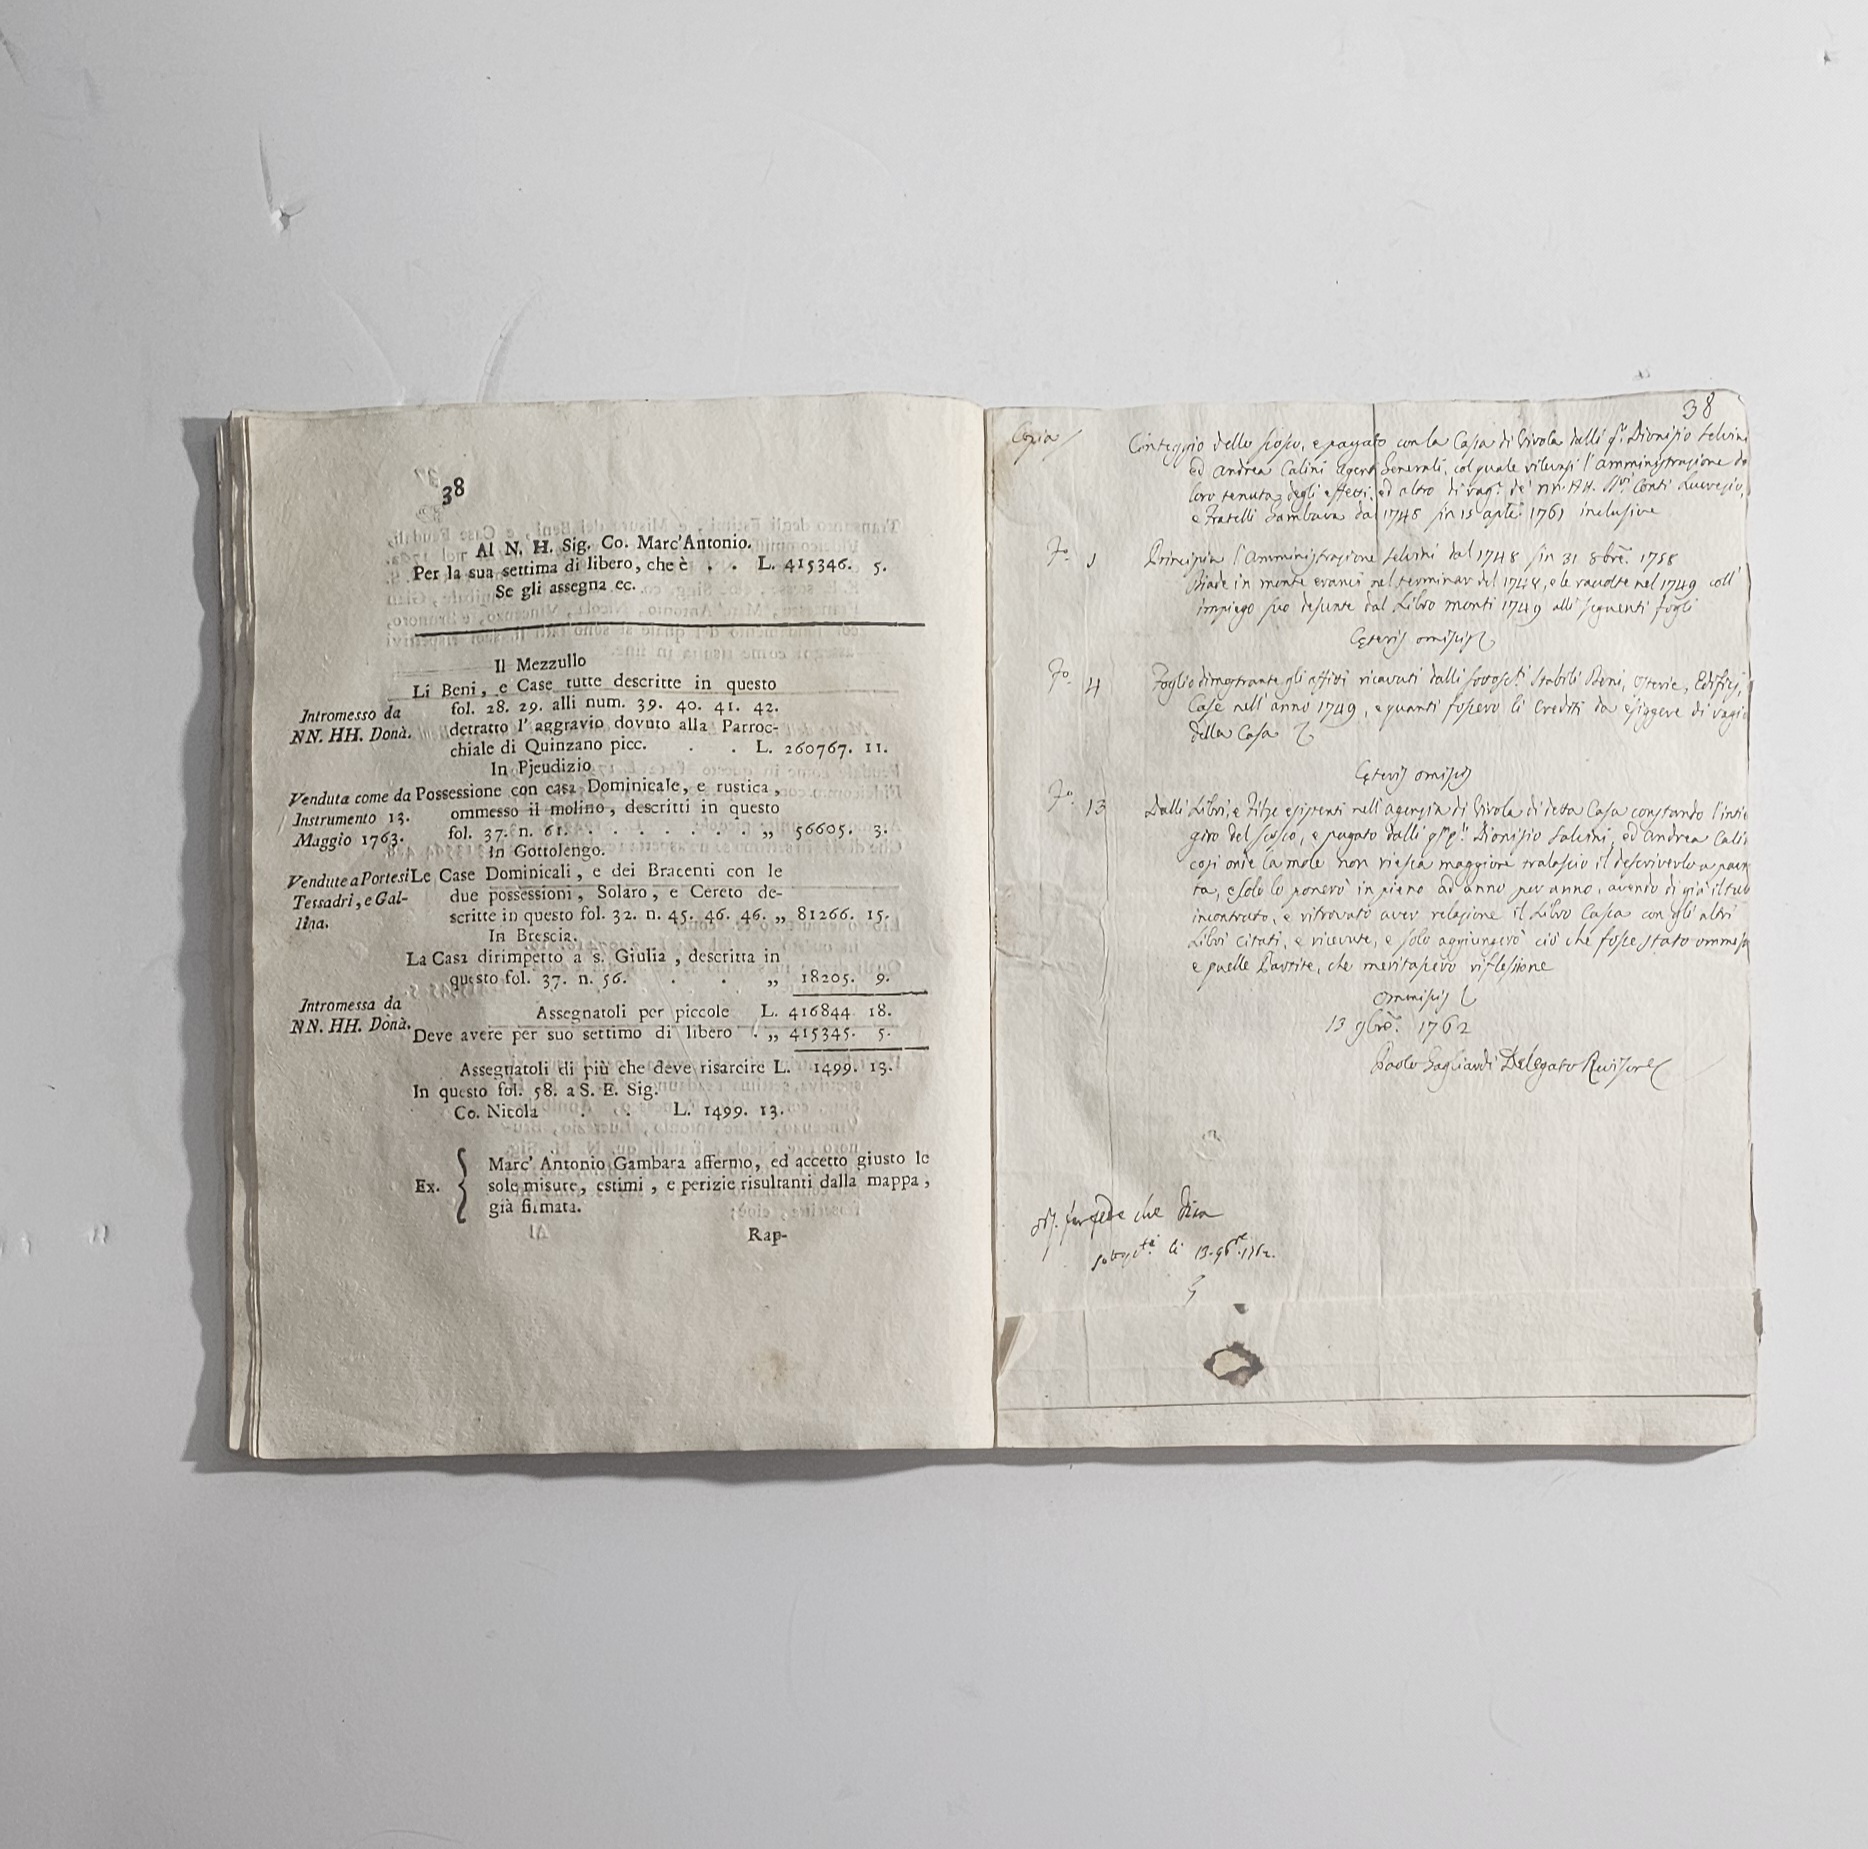 38
Al N. H. Sig. Co. Marc'Antonio.
Per la sua settima di libero, che è . . L. 415346. 5.
Se gli assegna ec.
Il Mezzullo
Li Beni, e Case tutte descritte in questo
fol. 28. 29. alli num. 39. 40. 41. 42.
Intromesso da
NN. HH. Donà.
detratto l'aggravio dovuto alla Parroc-
chiale di Quinzano picc. . . L. 260767. 11.
In Pieudizio
Venduta come da
Instrumento 13.
Maggio 1763.
Possessione con casa Dominicale, e rustica,
ommesso il molino, descritti in questo
fol. 37. n. 61. . . . . . . . „ 56605. 3.
In Gottolengo.
Vendute a Portesi
Tessadri, e Gal-
lina.
Le Case Dominicali, e dei Bracenti con le
due possessioni, Solaro, e Cereto de-
scritte in questo fol. 32. n. 45. 46. 46. „ 81266. 15.
In Brescia.
La Casa dirimpetto a s. Giulia, descritta in
questo fol. 37. n. 56. . . „ 18205. 9.
Intromessa da
NN. HH. Donà.
Assegnatoli per piccole L. 416844 18.
Deve avere per suo settimo di libero . „ 415345. 5.
Assegnatoli di più che deve risarcire L. 1499. 13.
In questo fol. 58. a S. E. Sig.
Co. Nicola . . L. 1499. 13.
Ex. { Marc' Antonio Gambara affermo, ed accetto giusto le
sole misure, estimi, e perizie risultanti dalla mappa,
già firmata.
Rap-
38
Copia
Conteggio dello scoso, e pagato con la Casa di Virola dalli Dionisio Selvini
ed Andrea Calini Agenti Generali, col quale rilevasi l'amministrazione da
loro tenuta degli effetti, ed altro di rag. de' NN. HH. Conti Lucrezio,
e Fratelli Gambara dal 1748 sin 15 aple. 1761 inclusive
Fo. 1 Principia l'Amministrazione Selvini dal 1748 sin 31 8bre. 1758
Biade in monte avanci nel terminar del 1748, e le racolte nel 1749 coll'
impiego suo desunte dal Libro monti 1749 alli seguenti fogli
Cęteris omissis
Fo. 4 Foglio dimostrante gli affitti ricavati dalli Stabili Beni, Osterie, Edifizi,
Case nell'anno 1749, e quanti fossero li Crediti da esiggere di ragio
della Casa
Cęteris omissis
Fo. 13 Dalli Libri, e Filze esistenti nell'agenzia di Virola di detta Casa constando l'inti
giro del scoso, e pagato dalli Dionisio Salvini, ed Andrea Calin
così onde la mole non riesca maggiore tralascio il descriverlo a par
ta, e solo lo ponerò in pieno ad anno per anno, avendo di già il tut
incontrato, e ritrovato aver relazione il Libro Cassa con gli altri
Libri citati, e ricevute, e solo aggiungerò ciò che fosse stato ommess
e quelle Partite, che meritassero riflessione
Ommissis
13 9bre. 1762
Paolo Gagliardi Delegato Revisore
li 13. 9bre. 1762.